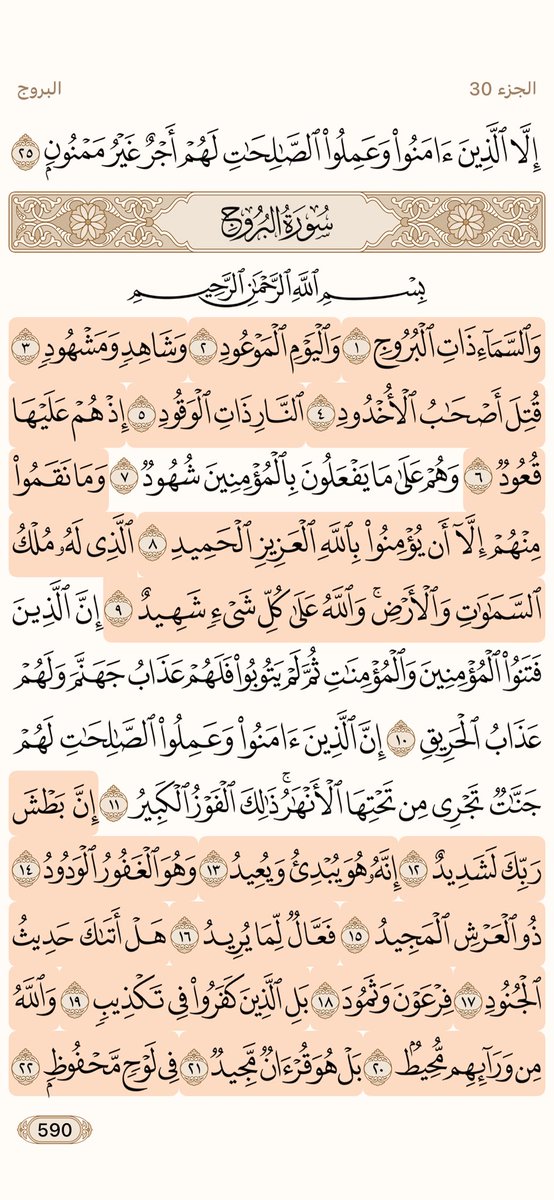 الجزء 30
البروج
إِلَّا ٱلَّذِينَ ءَامَنُوا۟ وَعَمِلُوا۟ ٱلصَّـٰلِحَـٰتِ لَهُمْ أَجْرٌ غَيْرُ مَمْنُونٍۭ ٢٥
سُورَةُ البُرُوجِ
بِسْمِ ٱللَّهِ ٱلرَّحْمَـٰنِ ٱلرَّحِيمِ
وَٱلسَّمَآءِ ذَاتِ ٱلْبُرُوجِ ١ وَٱلْيَوْمِ ٱلْمَوْعُودِ ٢ وَشَاهِدٍ وَمَشْهُودٍ ٣
قُتِلَ أَصْحَـٰبُ ٱلْأُخْدُودِ ٤ ٱلنَّارِ ذَاتِ ٱلْوَقُودِ ٥ إِذْ هُمْ عَلَيْهَا
قُعُودٌ ٦ وَهُمْ عَلَىٰ مَا يَفْعَلُونَ بِٱلْمُؤْمِنِينَ شُهُودٌ ٧ وَمَا نَقَمُوا۟
مِنْهُمْ إِلَّآ أَن يُؤْمِنُوا۟ بِٱللَّهِ ٱلْعَزِيزِ ٱلْحَمِيدِ ٨ ٱلَّذِى لَهُۥ مُلْكُ
ٱلسَّمَـٰوَٰتِ وَٱلْأَرْضِ ۚ وَٱللَّهُ عَلَىٰ كُلِّ شَىْءٍ شَهِيدٌ ٩ إِنَّ ٱلَّذِينَ
فَتَنُوا۟ ٱلْمُؤْمِنِينَ وَٱلْمُؤْمِنَـٰتِ ثُمَّ لَمْ يَتُوبُوا۟ فَلَهُمْ عَذَابُ جَهَنَّمَ وَلَهُمْ
عَذَابُ ٱلْحَرِيقِ ١٠ إِنَّ ٱلَّذِينَ ءَامَنُوا۟ وَعَمِلُوا۟ ٱلصَّـٰلِحَـٰتِ لَهُمْ
جَنَّـٰتٌ تَجْرِى مِن تَحْتِهَا ٱلْأَنْهَـٰرُ ۚ ذَٰلِكَ ٱلْفَوْزُ ٱلْكَبِيرُ ١١ إِنَّ بَطْشَ
رَبِّكَ لَشَدِيدٌ ١٢ إِنَّهُۥ هُوَ يُبْدِئُ وَيُعِيدُ ١٣ وَهُوَ ٱلْغَفُورُ ٱلْوَدُودُ ١٤
ذُو ٱلْعَرْشِ ٱلْمَجِيدُ ١٥ فَعَّالٌ لِّمَا يُرِيدُ ١٦ هَلْ أَتَىٰكَ حَدِيثُ
ٱلْجُنُودِ ١٧ فِرْعَوْنَ وَثَمُودَ ١٨ بَلِ ٱلَّذِينَ كَفَرُوا۟ فِى تَكْذِيبٍ ١٩ وَٱللَّهُ
مِن وَرَآئِهِم مُّحِيطٌۢ ٢٠ بَلْ هُوَ قُرْءَانٌ مَّجِيدٌ ٢١ فِى لَوْحٍ مَّحْفُوظٍۭ ٢٢
590